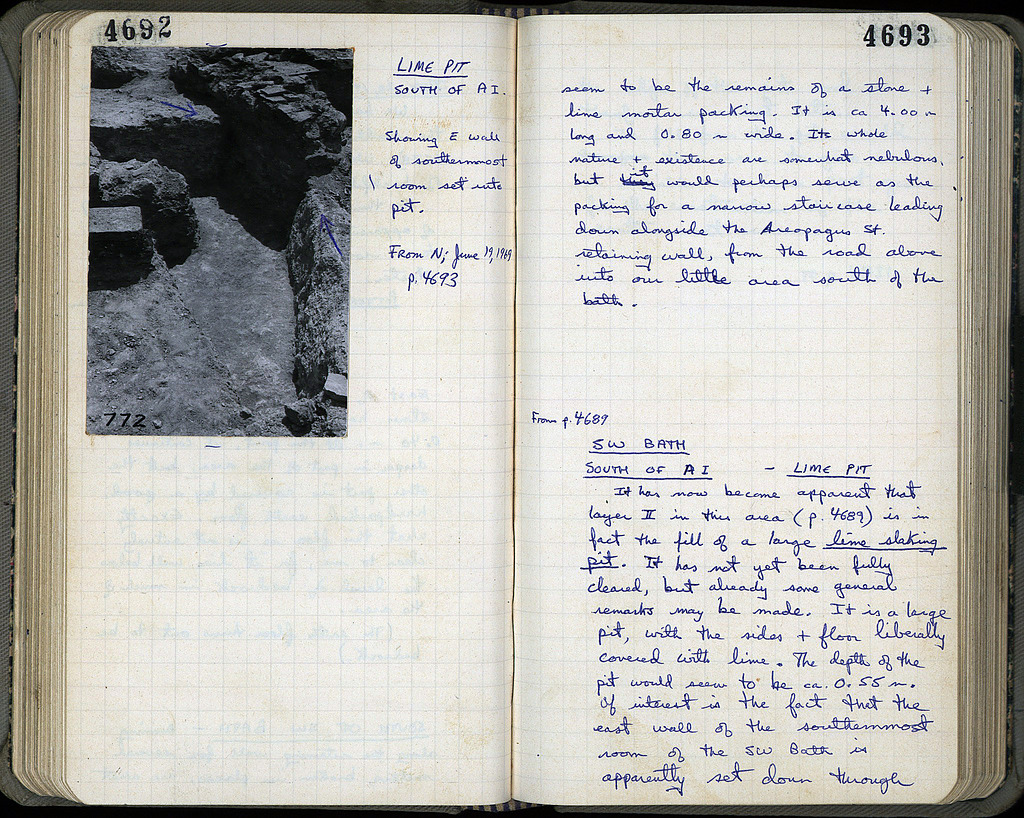 4692
LIME PIT
SOUTH OF A I.
Showing E wall
of southernmost
room set into
pit.
From N; June 19, 1969
p. 4693
772
4693
seem to be the remains of a stone +
lime mortar packing. It is ca 4.00 m
long and 0.80 m wide. Its whole
nature + existence are somewhat nebulous,
but they it would perhaps serve as the
packing for a narrow staircase leading
down alongside the Areopagus St.
retaining wall, from the road above
into our little area south of the
bath.
From p. 4689
SW BATH
SOUTH OF A I - LIME PIT
It has now become apparent that
layer II in this area (p. 4689) is in
fact the fill of a large lime slaking
pit. It has not yet been fully
cleared, but already some general
remarks may be made. It is a large
pit, with the sides + floor liberally
covered with lime. The depth of the
pit would seem to be ca. 0.55 m.
Of interest is the fact that the
east wall of the southernmost
room of the SW Bath is
apparently set down through